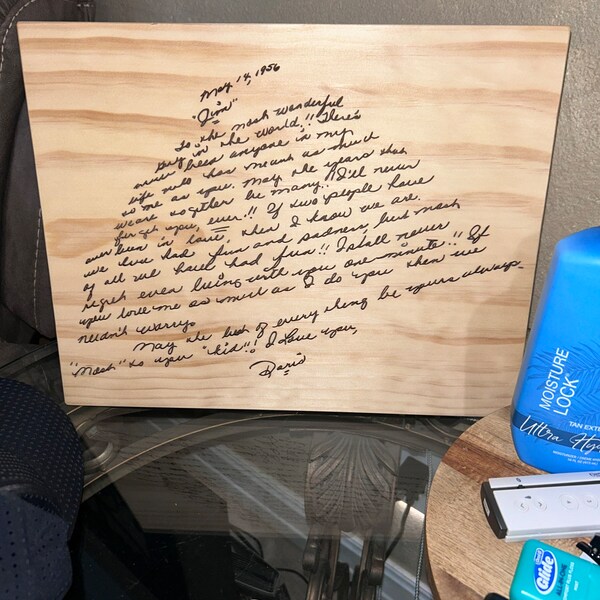 May 14, 1956
"Jim"
To the most wonderful
guy in the world!! There's
never been anyone in my
life who has meant as much
to me as you. May the years that
we are together be many. I'll never
forget you, ever!! If two people have
ever been in love, then I know we are.
We have had fun and sadness, but most
of all we have had fun!! I shall never
regret even living with you one minute!! If
you love me as much as I do you then we
needn't worry.
May the best of every thing be yours always.
"Mosh" to your "kid"! I Love you,
Doris
MOISTURE
LOCK™
TAN EXTE
Ultra Hy
Oral-B
Glide